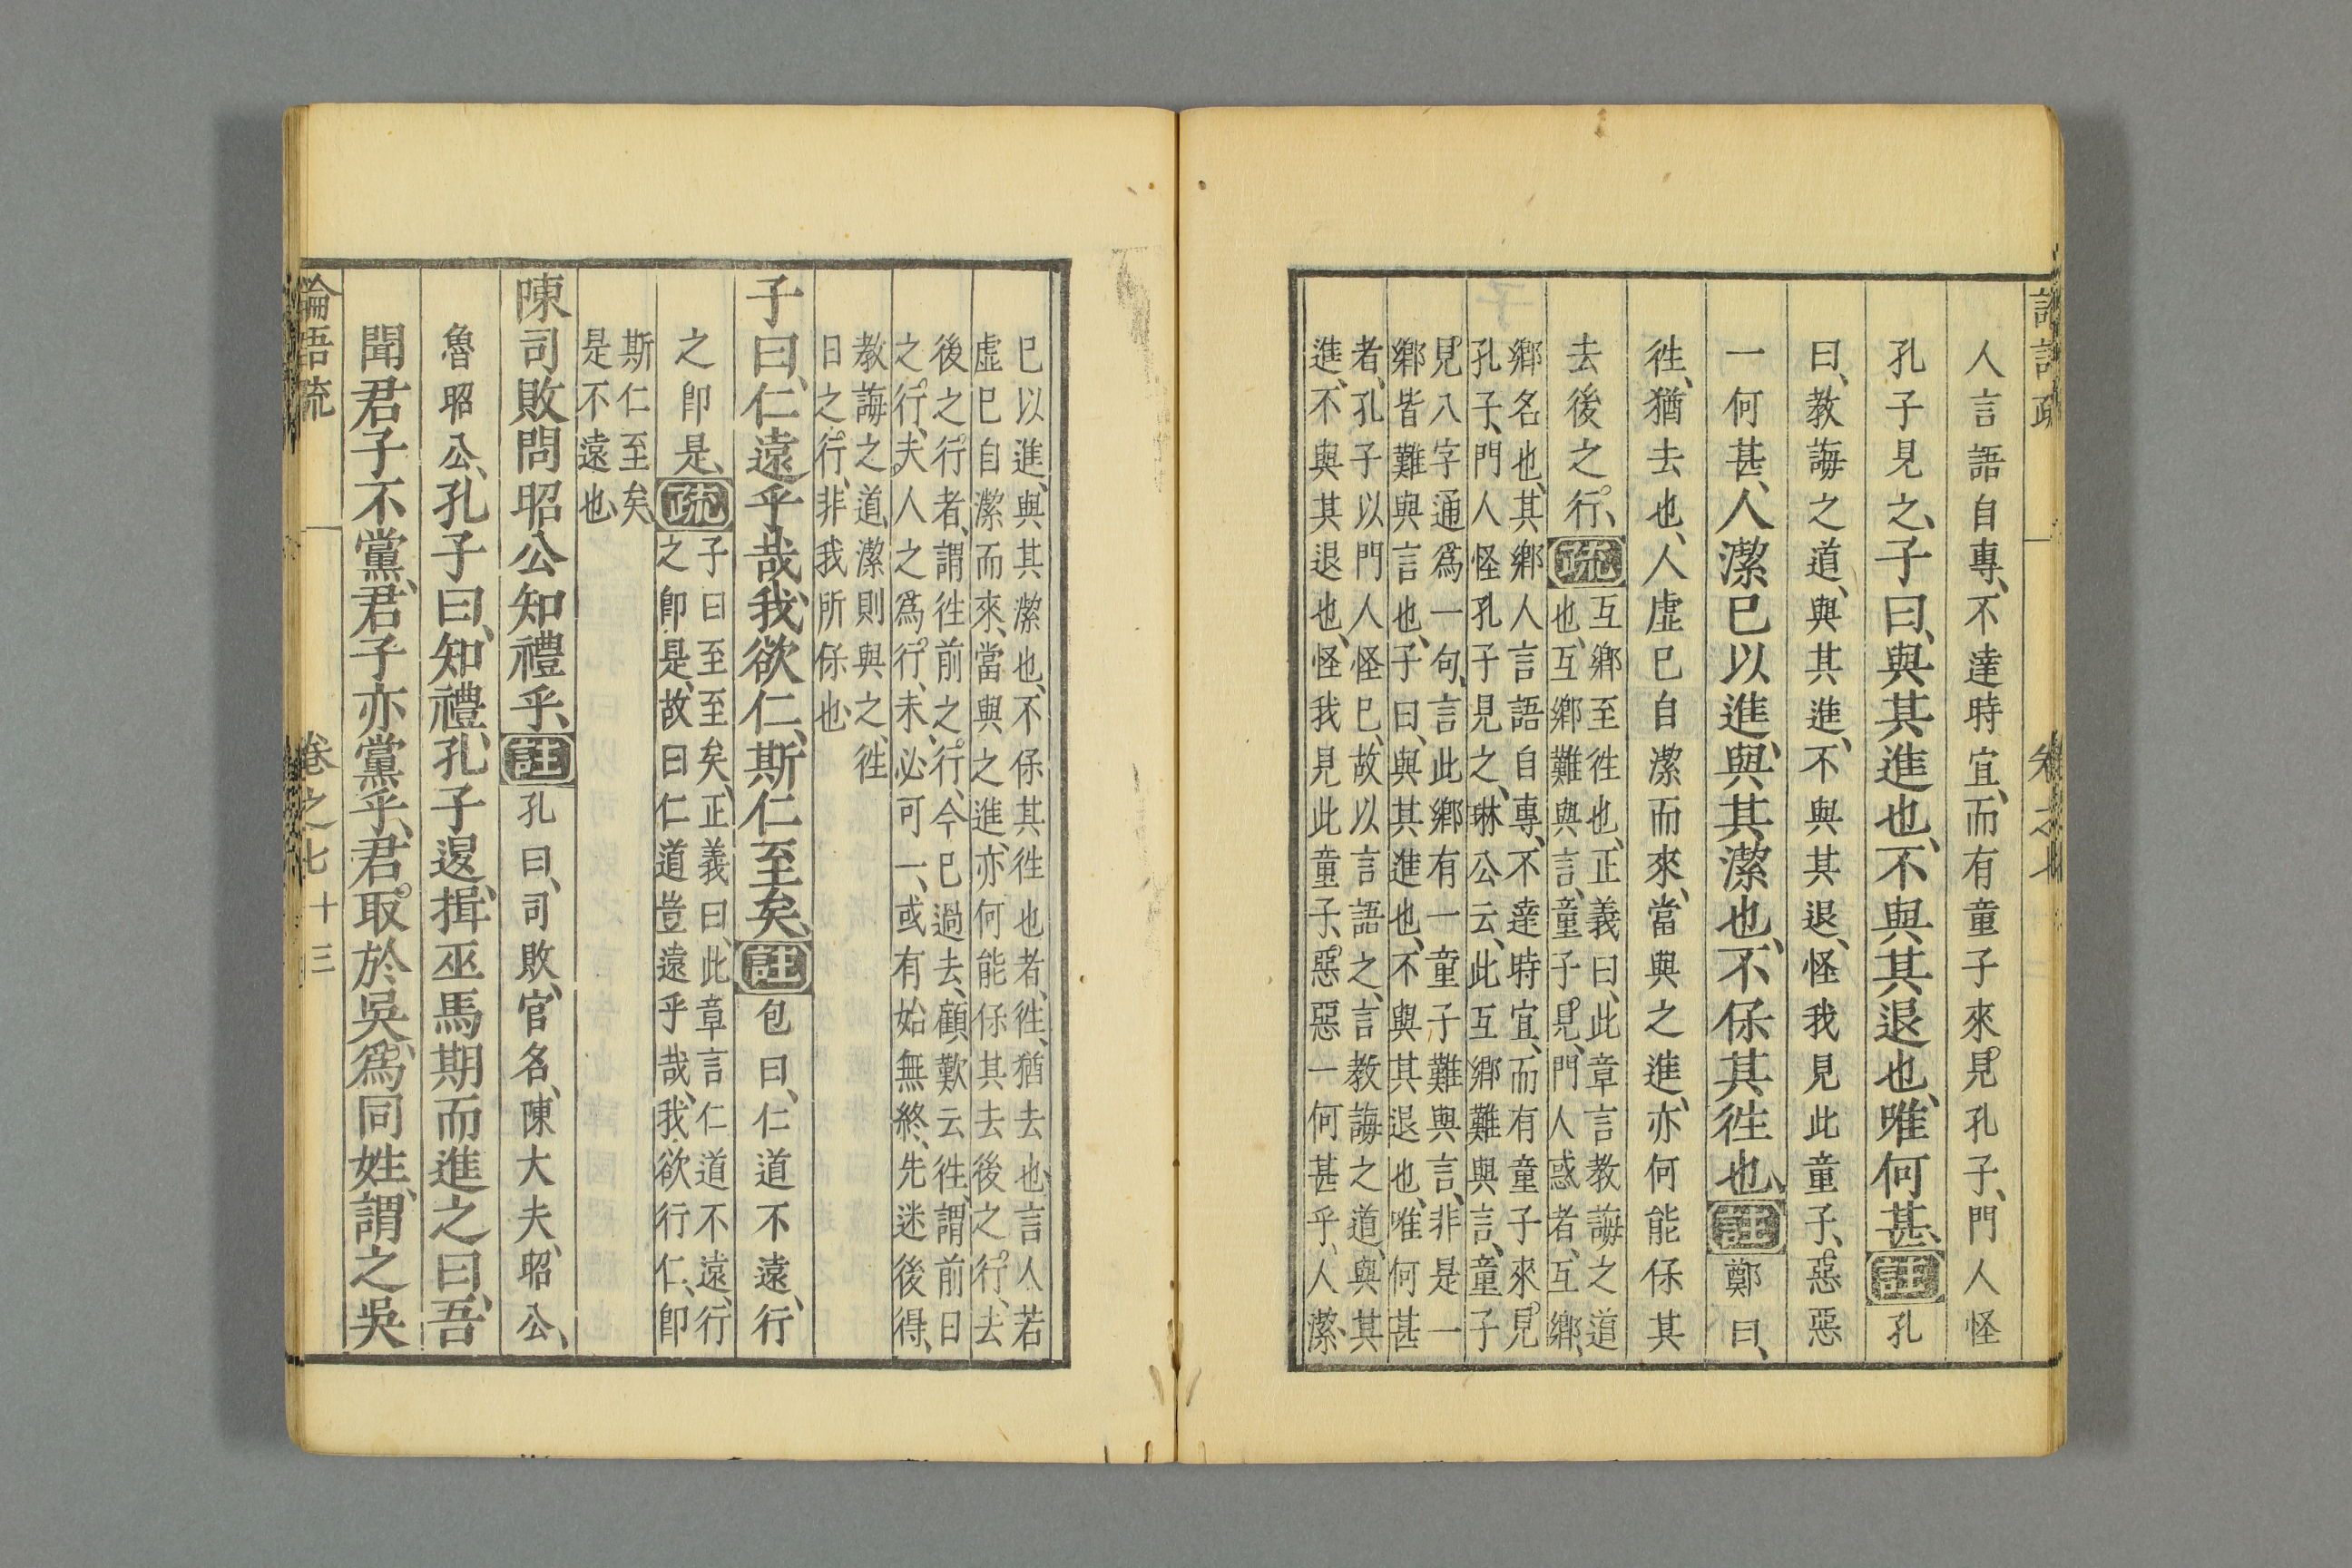 人言語自專、不達時宜、而有童子來見孔子、門人怪
孔子見之、子曰、與其進也、不與其退也、唯何甚、註孔
曰、教誨之道、與其進、不與其退、怪我見此童子、惡惡
一何甚、人潔已以進、與其潔也、不保其徃也、註鄭曰、
徃、猶去也、人虛已自潔而來、當與之進、亦何能保其
去後之行、疏互鄉至徃也、正義曰、此章言教誨之道
也、互鄉難與言、童子見、門人惑者、互鄉、
鄉名也、其鄉人言語自專、不達時宜、而有童子來見
孔子、門人怪孔子見之、琳公云、此互鄉難與言、童子
見八字通爲一句、言此鄉有一童子難與言、非是一
鄉皆難與言也、子曰、與其進也、不與其退也、唯何甚
者、孔子以門人怪已、故以言語之、言教誨之道、與其
進、不與其退也、怪我見此童子、惡惡一何甚乎、人潔、
已以進、與其潔也、不保其徃也者、徃、猶去也、言人若
虛已自潔而來、當與之進、亦何能保其去後之行、去
後之行者、謂徃前之行、今已過去、顧歎云徃、謂前日
之行、夫人之爲行、未必可一、或有始無終、先迷後得、
教誨之道、潔則與之、徃
日之行、非我所保也、
子曰、仁遠乎哉、我欲仁、斯仁至矣、註包曰、仁道不遠、行
之卽是、疏子曰至至矣、正義曰、此章言仁道不遠、行
之卽是、故曰仁道豈遠乎哉、我欲行仁、卽
斯仁至矣、
是不遠也、
陳司敗問昭公知禮乎、註孔曰、司敗、官名、陳大夫、昭公、
魯昭公、孔子曰、知禮、孔子退、揖巫馬期而進之曰、吾
聞君子不黨、君子亦黨乎、君取於吳、爲同姓、謂之吳
論語疏 卷之七 十三